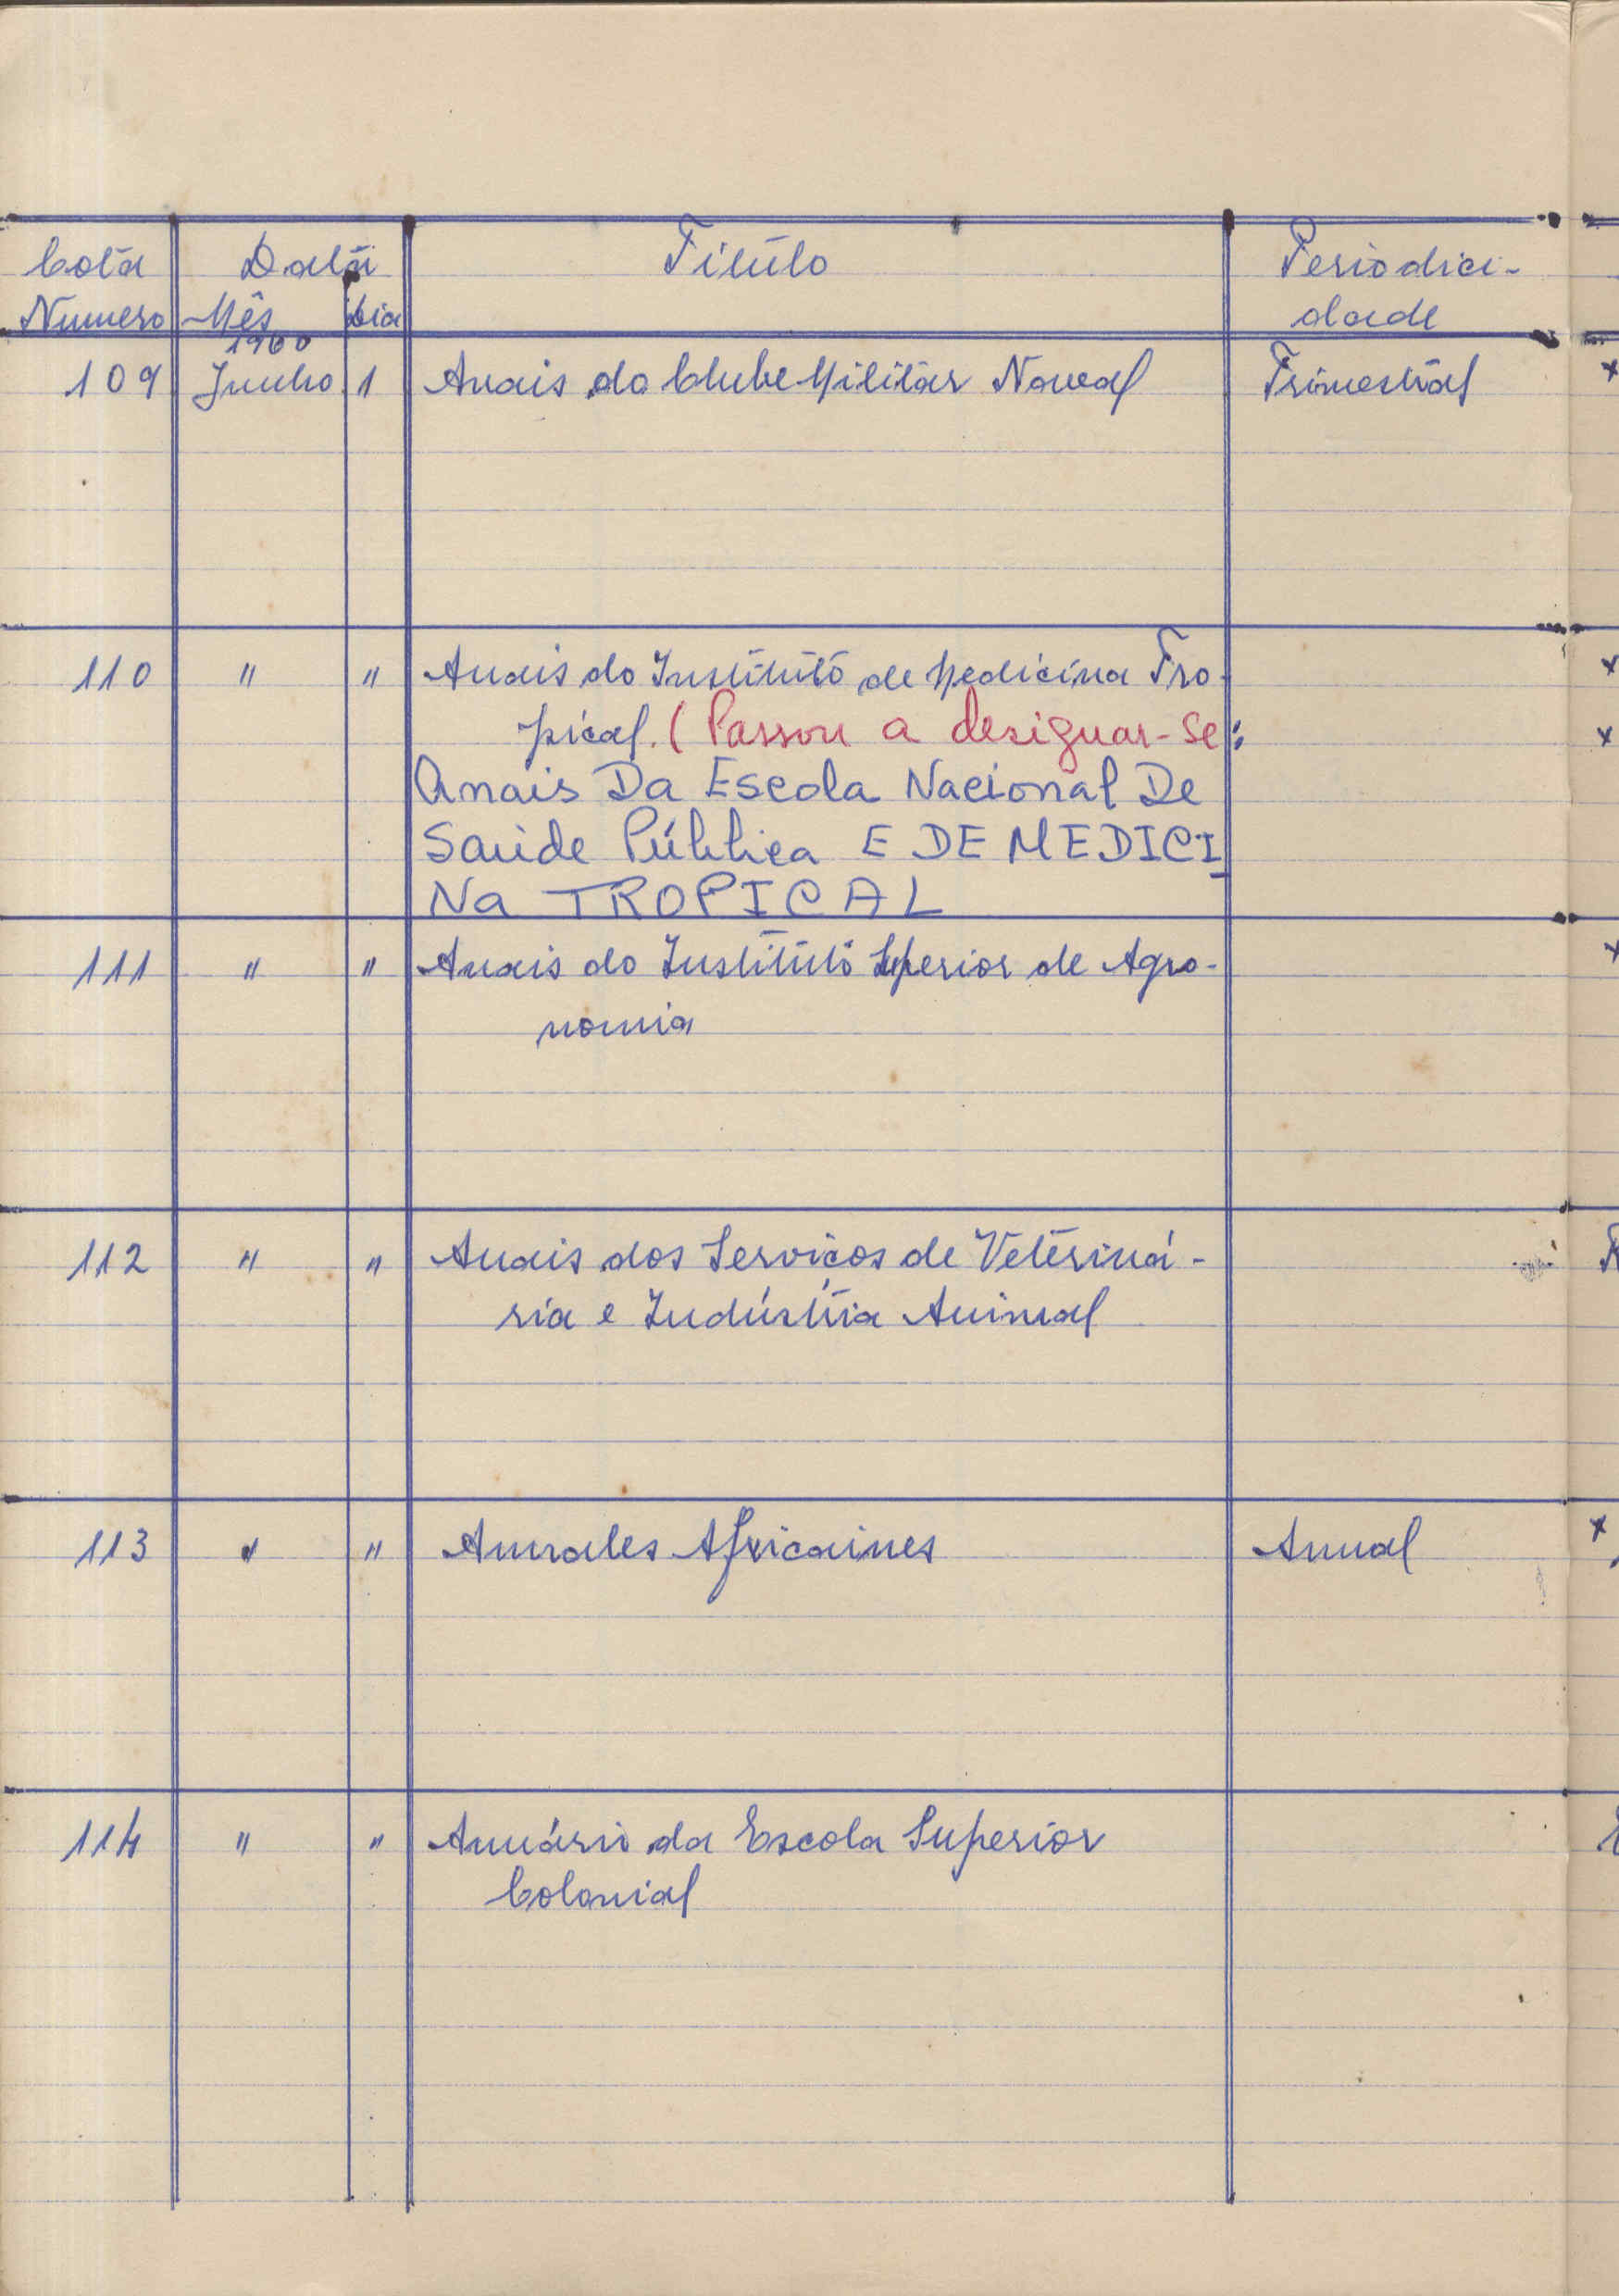 Cota Data Titulo Periodici-
Numero Mês Dia dade
1960
109 Junho 1 Anais do Clube Militar Naval Trimestral x
110 " " Anais do Instituto de Medicina Tro- x
pical. (Passou a designar-se: x
Anais Da Escola Nacional De
Saúde Pública E DE MEDICI
Na TROPICAL
111 " " Anais do Instituto Superior de Agro- x
nomia
112 " " Anais dos Serviços de Veteriná-
ria e Indústria Animal
113 " " Annales Africaines Annual x
114 " " Anuário da Escola Superior
Colonial